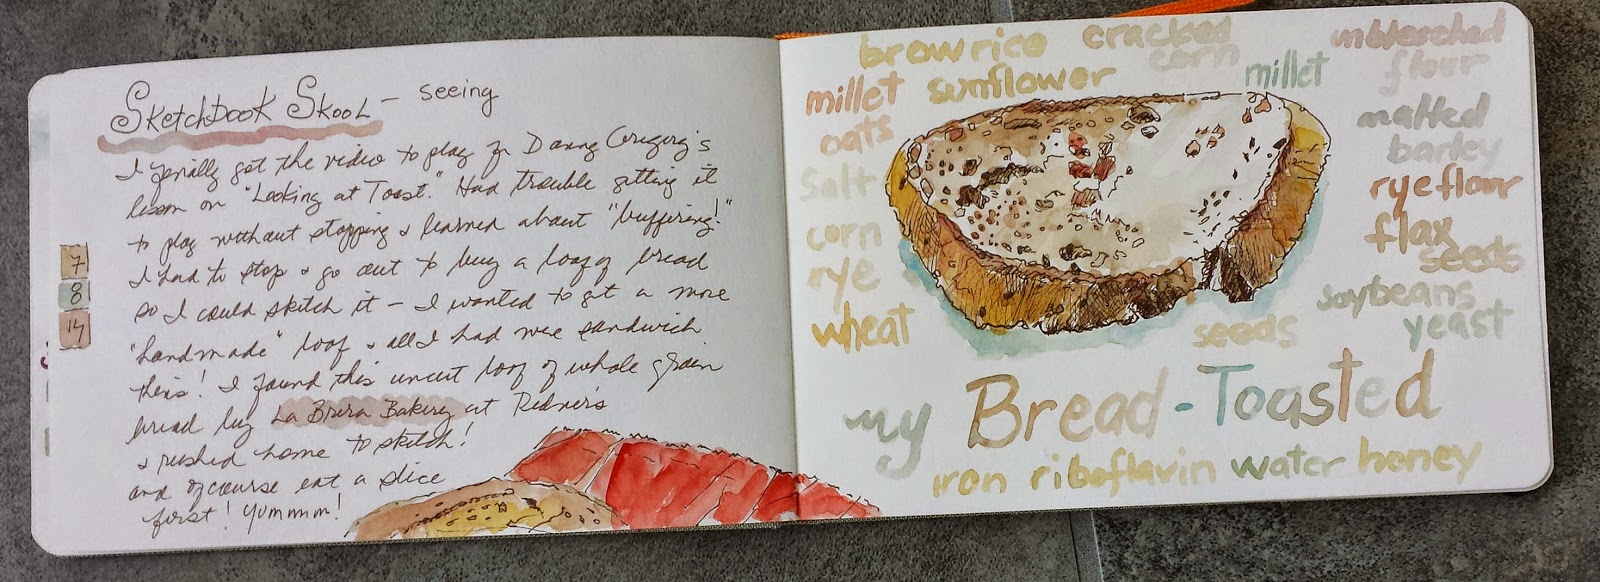 Sketchbook Skool - seeing
I finally got the video to play for Danny Gregory's
lesson on "Looking at Toast." Had trouble getting it
to play without stopping & learned about "buffering!"
I had to stop & go out to buy a loaf of bread
so I could sketch it - I wanted to get a more
"handmade" loaf & all I had were sandwich
thins! I found this uncut loaf of whole grain
bread by La Brera Bakery at Redner's
& rushed home to sketch!
and of course eat a slice
first! Yummm!
7
8
14
brown rice
cracked
corn
unbleached
flour
millet
sunflower
millet
oats
malted
barley
salt
rye flour
corn
flax
seeds
rye
soybeans
wheat
seeds
yeast
my Bread - Toasted
iron riboflavin water honey